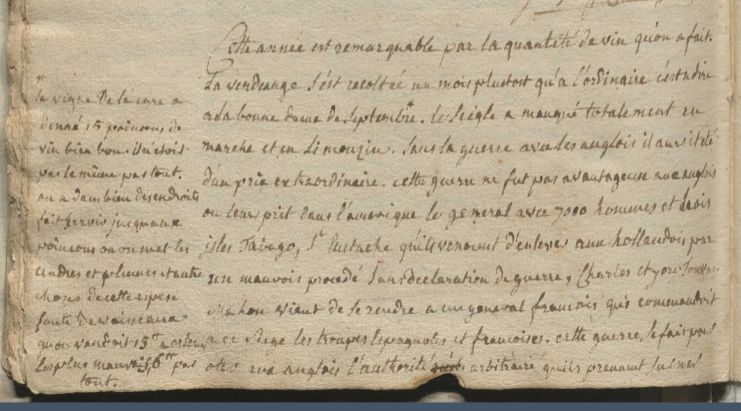 Cette année est remarquable par la quantité de vin qu'on a fait.
La vendange s'est recoltée un mois plustost qu'a l'ordinaire c'est a dire
a la bonne dame de Septembre. le seigle a manqué totalement en
marche et en Limouzin. Sans la guerre avec les anglois il auroit été
d'un prix extraordinaire. cette guerre ne fut pas avantageuse aux anglois
on leur prit dans l'amerique le general avec 7000 hommes et trois
isles Tabago, St Eustache qu'ils venoient d'enlever aux hollandois par
un mauvois procedé sans declaration de guerre,
mahon vient de se rendre a un general francois qui comandoit
a ce siege les troupes espagnoles et francoises. cette guerre, se fait pour
oter aux anglois l'authorité arbitraire qu'ils prenoient sur mer
la vigne De la cure a
donné 15 poincons de
vin bien bon. il n'étoit
pas le même partout.
on a dans bien des endroits
fait servir jusqu'aux
poincons ou on met les
cendres et plumes et autre
choses de cette espese
faute de vaisceaux
qui vaudroit 15tt
les plus mauvais 6tt par
tout.